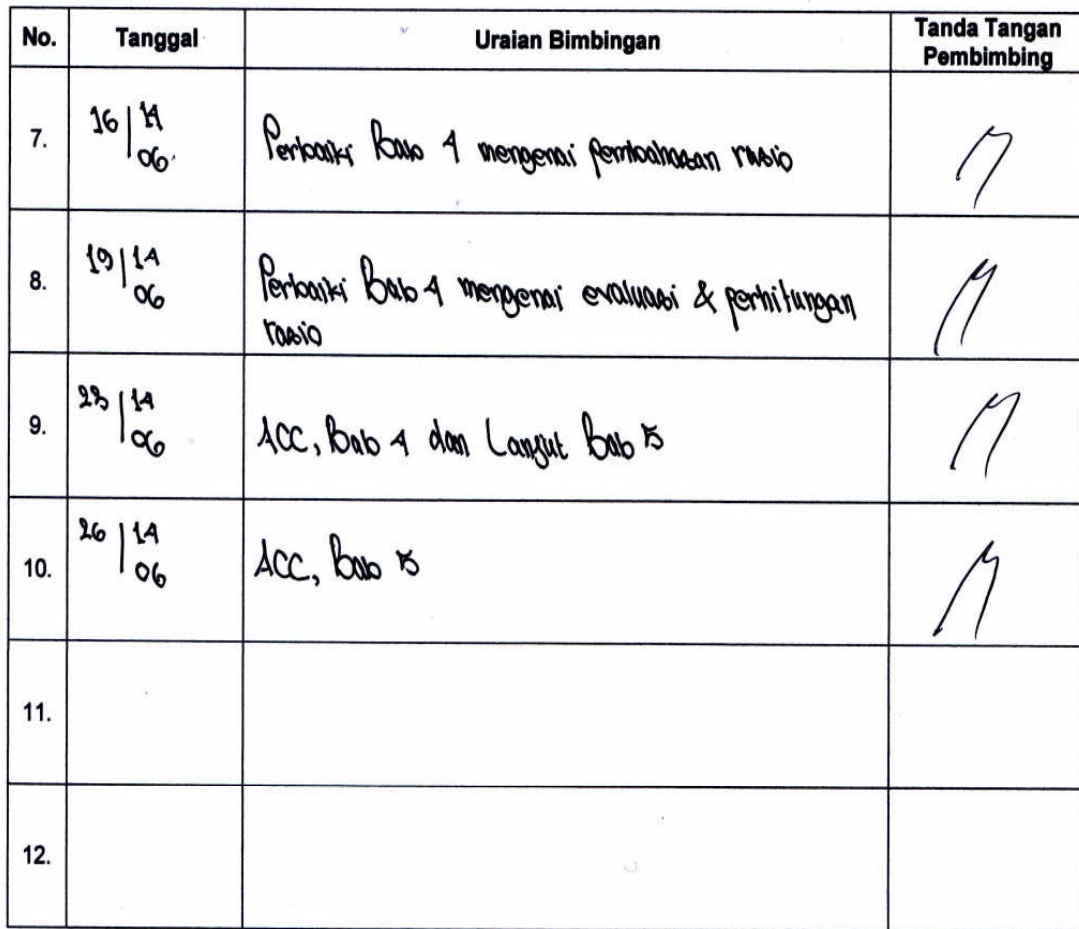 No. Tanggal Uraian Bimbingan Tanda Tangan
Pembimbing
7. 16 | 14
06
Perbaiki Bab 4 mengenai pembahasan rasio
8. 19 | 14
06
Perbaiki Bab 4 mengenai evaluasi & perhitungan
rasio
9. 23 | 14
06
ACC, Bab 4 dan Lanjut Bab 5
10. 26 | 14
06
ACC, Bab 5
11.
12.